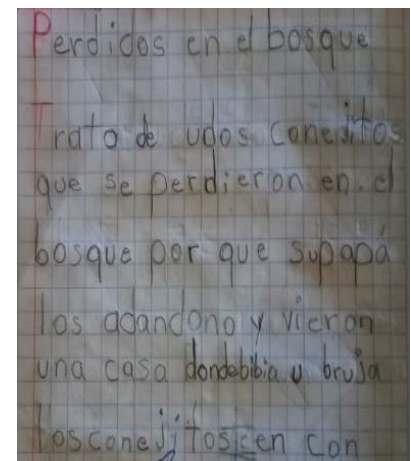 Perdidos en el bosque
Trato de udos conejitos
que se perdieron en el
bosque por que supapá
los adandono y vieron
una casa dondebibia u bruja
losconejitos en con